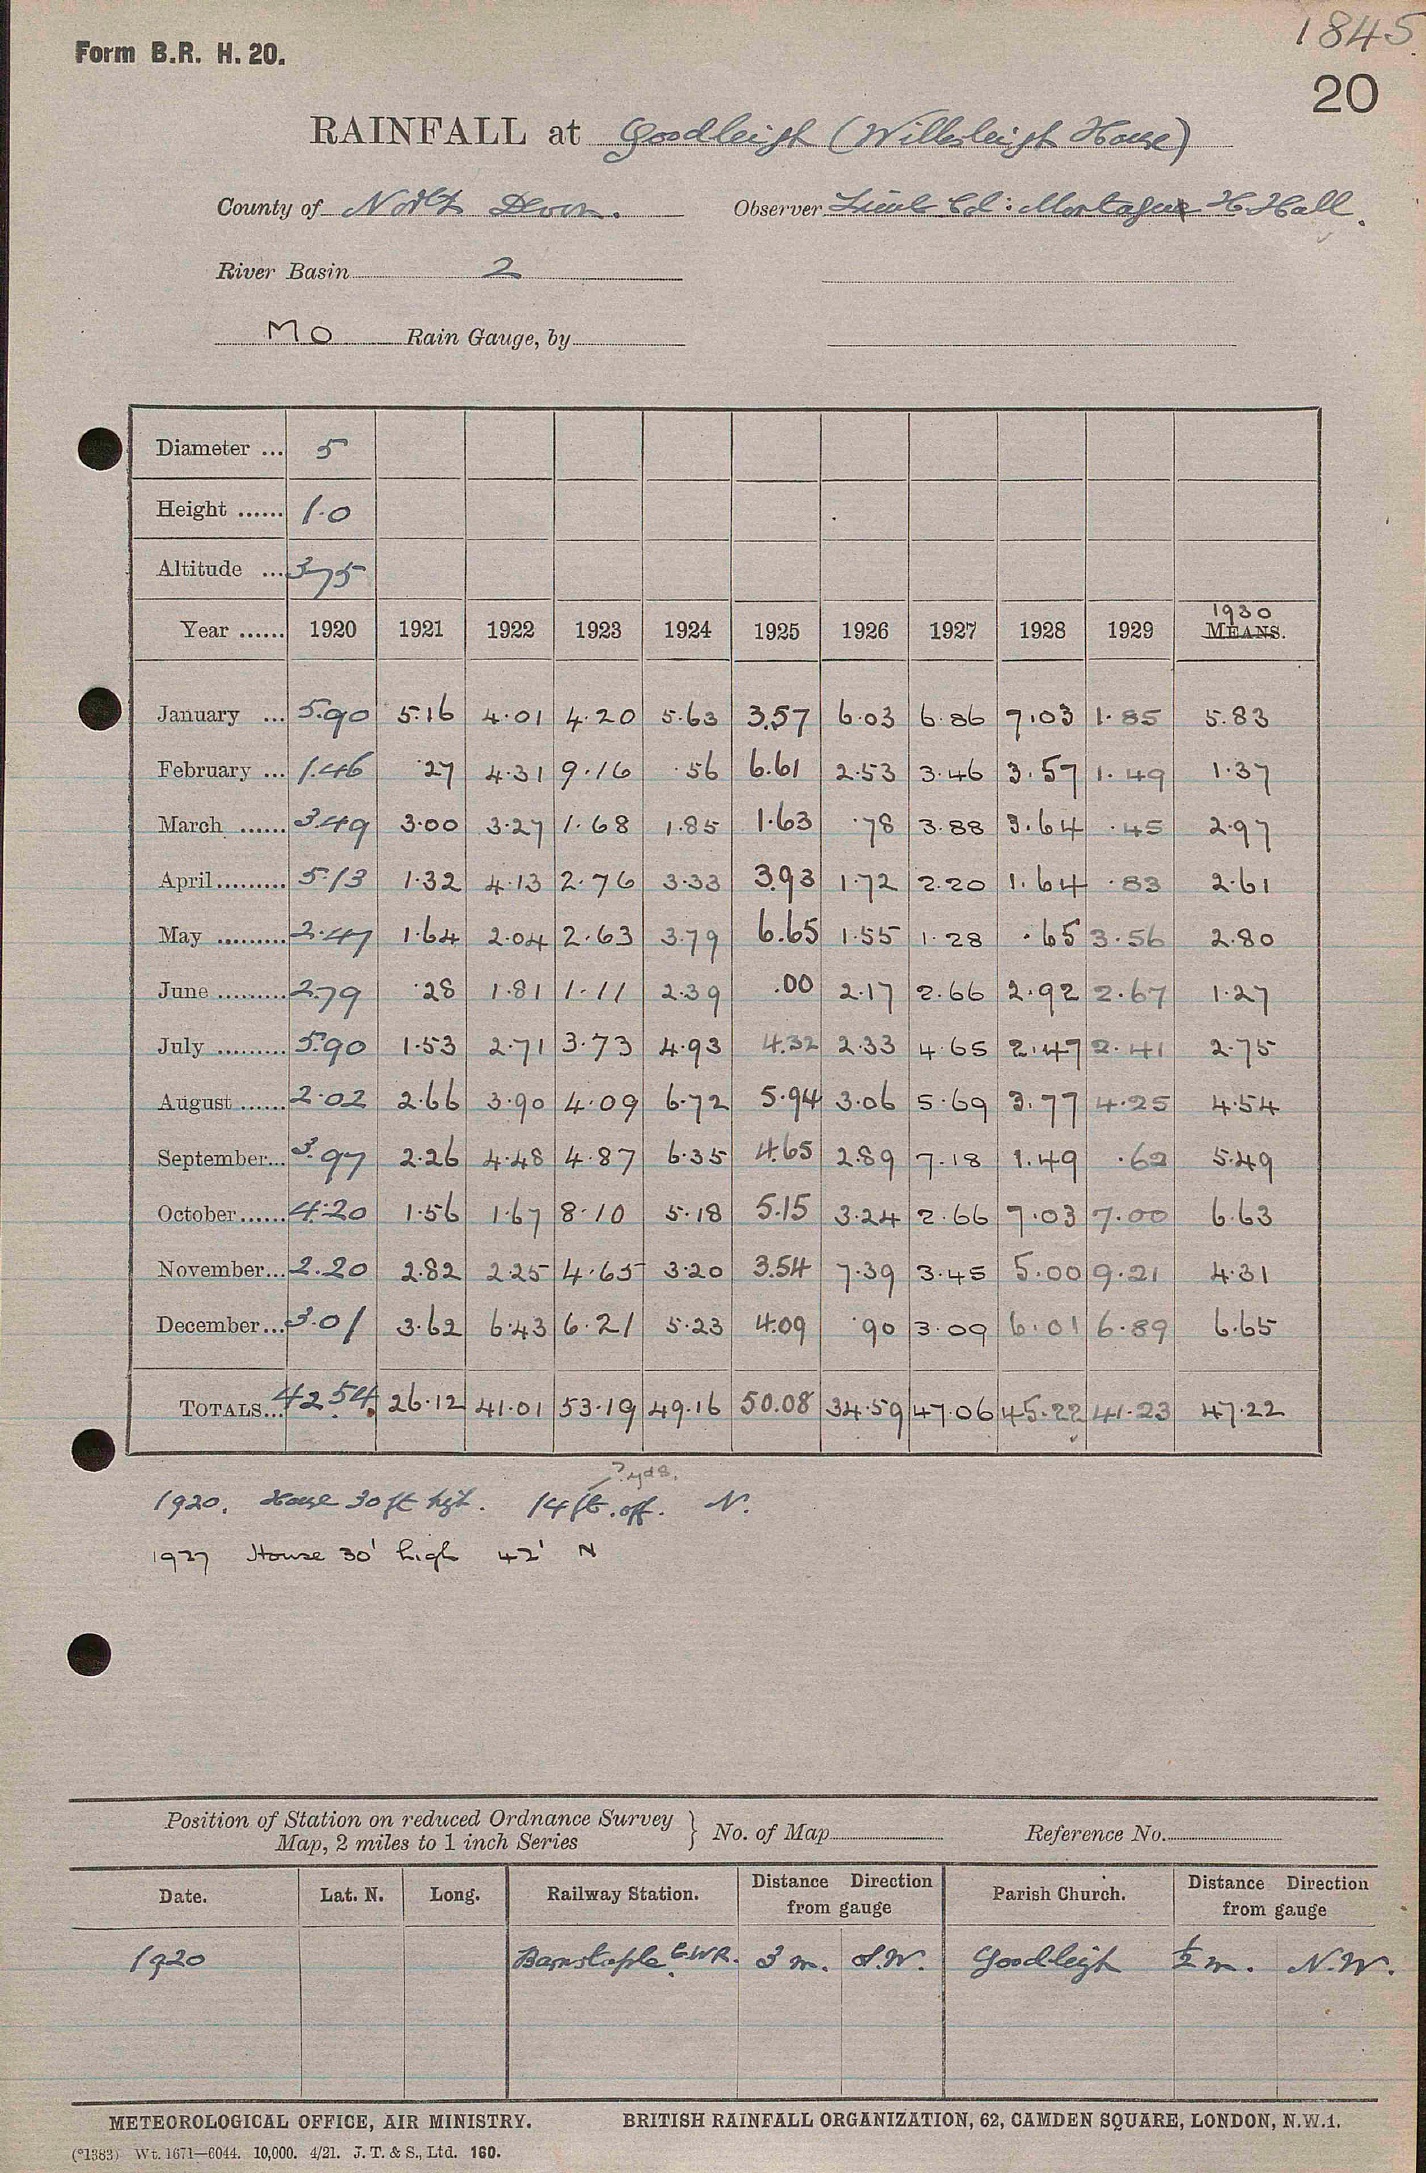 1845
Form B.R. H. 20.
20
RAINFALL at Goodleigh (Willesleigh House)
County of North Devon. Observer Lieut Col: Montague H. Hall.
River Basin 2
MO Rain Gauge, by
Diameter ... 5
Height ...... 1.0
Altitude ... 375
1930
Year ...... 1920 1921 1922 1923 1924 1925 1926 1927 1928 1929 MEANS.
January ... 5.90 5.16 4.01 4.20 5.63 3.57 6.03 6.86 7.03 1.85 5.83
February ... 1.46 .27 4.31 9.16 .56 6.61 2.53 3.46 3.57 1.49 1.37
March ...... 3.49 3.00 3.27 1.68 1.85 1.63 .78 3.88 3.64 .45 2.97
April ......... 5.13 1.32 4.13 2.76 3.33 3.93 1.72 2.20 1.64 .83 2.61
May ......... 2.47 1.64 2.04 2.63 3.79 6.65 1.55 1.28 .65 3.56 2.80
June ......... 2.79 .28 1.81 1.11 2.39 .00 2.17 2.66 2.92 2.67 1.27
July ......... 5.90 1.53 2.71 3.73 4.93 4.32 2.33 4.65 2.47 2.41 2.75
August ...... 2.02 2.66 3.90 4.09 6.72 5.94 3.06 5.69 3.77 4.25 4.54
September... 3.97 2.26 4.48 4.87 6.35 4.65 2.89 7.18 1.49 .62 5.49
October...... 4.20 1.56 1.67 8.10 5.18 5.15 3.24 2.66 7.03 7.00 6.63
November... 2.20 2.82 2.25 4.65 3.20 3.54 7.39 3.45 5.00 9.21 4.31
December... 3.01 3.62 6.43 6.21 5.23 4.09 .90 3.09 6.01 6.89 6.65
TOTALS... 42.54 26.12 41.01 53.19 49.16 50.08 34.59 47.06 45.22 41.23 47.22
? yds.
1920. House 30 ft hgt. 14 ft. off. N.
1927 House 30' high 42' N
Position of Station on reduced Ordnance Survey
Map, 2 miles to 1 inch Series } No. of Map Reference No.
Date. Lat. N. Long. Railway Station. Distance Direction from gauge Parish Church. Distance Direction from gauge
1920 Barnstaple G.W.R. 3 m. S.W. Goodleigh ½ m. N.W.
METEOROLOGICAL OFFICE, AIR MINISTRY. BRITISH RAINFALL ORGANIZATION, 62, CAMDEN SQUARE, LONDON, N.W.1.
(*1383) Wt. 1671—6044. 10,000. 4/21. J. T. & S., Ltd. 160.